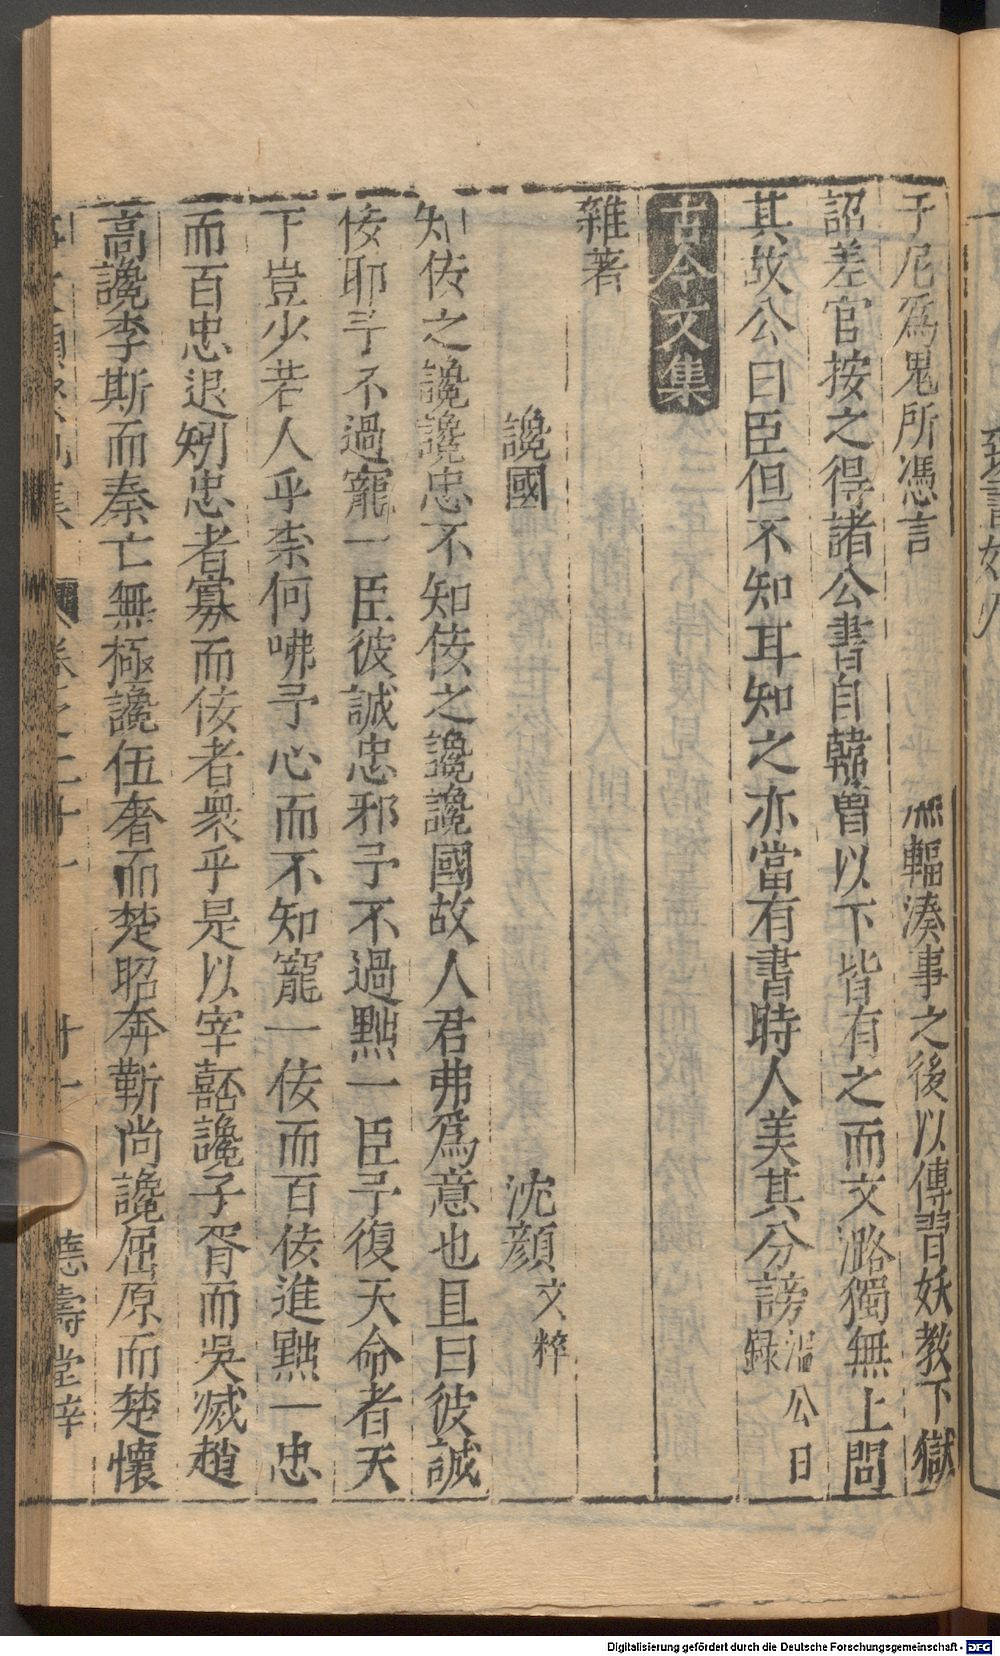 子尼爲鬼所憑言　　　　輻湊事之後以傳習妖教下獄
詔差官按之得諸公書自韓曾以下皆有之而文潞獨無上問
其故公曰臣但不知耳知之亦當有書時人美其分謗温公日録
古今文集
雜著
讒國　　　　沈顔文粹
知佞之讒讒忠不知佞之讒讒國故人君弗爲意也且曰彼誠
佞耶予不過寵一臣彼誠忠邪予不過黜一臣予復天命者天
下豈少若人乎柰何咈予心而不知寵一佞而百佞進黜一忠
而百忠退矧忠者寡而佞者衆乎是以宰嚭讒子胥而吳滅趙
高讒李斯而秦亡無極讒伍奢而楚昭奔靳尚讒屈原而楚懷
集　卷之二十一　十一　德壽堂梓
Digitalisierung gefördert durch die Deutsche Forschungsgemeinschaft - DFG